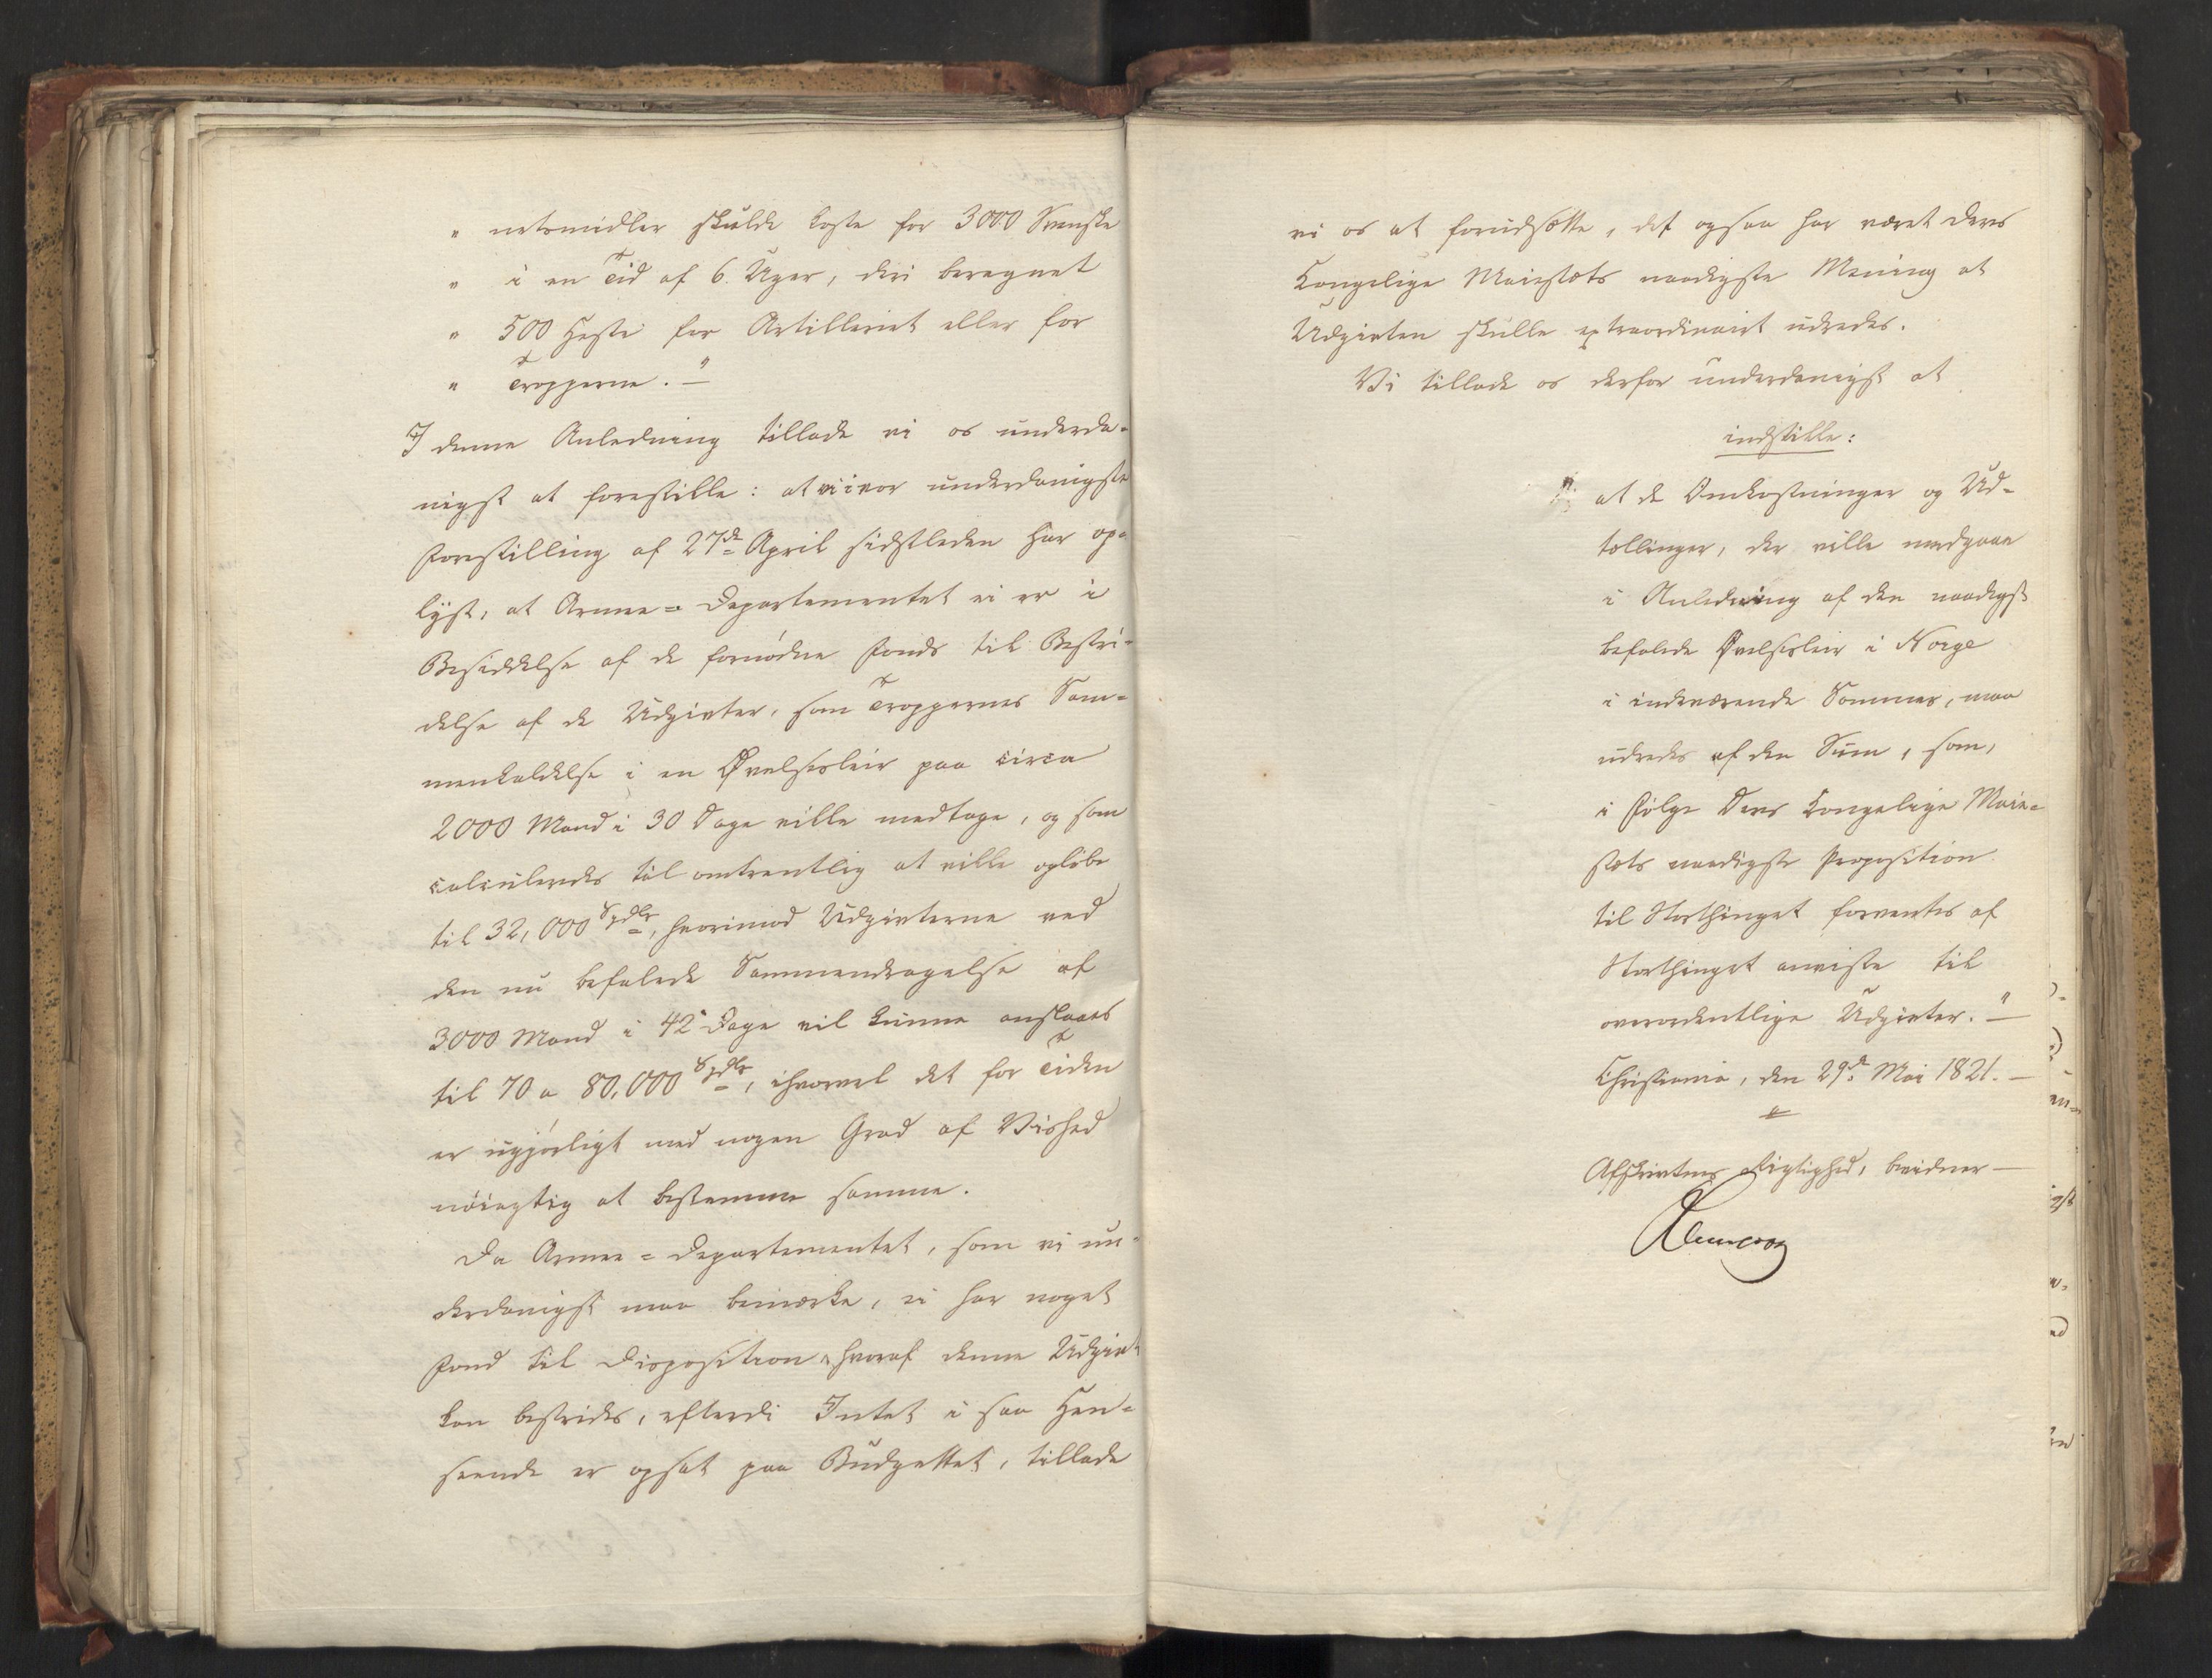 " netsmidler skulde koste for 3000 Svenske
" i en Tid af 6 Uger, deri beregnet
" 500 Heste for Artilleriet eller for
" Tropperne." –
I denne Anledning tillade vi os underda-
nigst at forestille: at vi i vor underdanigste
Forestilling af 27de April sidstleden har op-
lyst, at Armee-Departementet ei er i
Besiddelse af de fornødne Fonds til Bestri-
delse af de Udgivter, som Troppernes Sam-
menkaldelse i en Øvelsesleir paa circa
2000 Mand i 30 Dage ville medtage, og som
calculeredes til omtrentlig at ville opløbe
til 32,000 Spdlr, hvorimod Udgivterne ved
den nu befalede Sammendragelse af
3000 Mand i 42 Dage vil kunne anslaaes
til 70 a 80,000 Spdlr, ihvorvel det for Tiden
er ugjørligt med nogen Grad af Vished
nøiagtig at bestemme samme.
Da Armee-Departementet, som vi un-
derdanigst maa bemærke, ei har noget
Fond til Disposition, hvoraf denne Udgivt
kan bestrides, efterdi Intet i saa Hen-
seende er opsat paa Budgettet, tillade
vi os at forudsætte, det ogsaa har været Deres
Kongelige Majestæts naadigste Mening at
Udgivten skulle extraordinairt udredes.
Vi tillade os derfor underdanigst at
indstille:
" at de Omkostninger og Ud-
tællinger, der ville medgaae
i Anledning af den naadigst
befalede Øvelsesleir i Norge
i indeværende Sommer, maa
udredes af den Sum, som,
i Følge Deres Kongelige Maje-
stæts naadigste Proposition
til Storthinget forventes af
Storthinget anviste til
overordentlige Udgivter." –
Christiania, den 29de Mai 1821. –
Afskrivtens Rigtighed, bevidner –